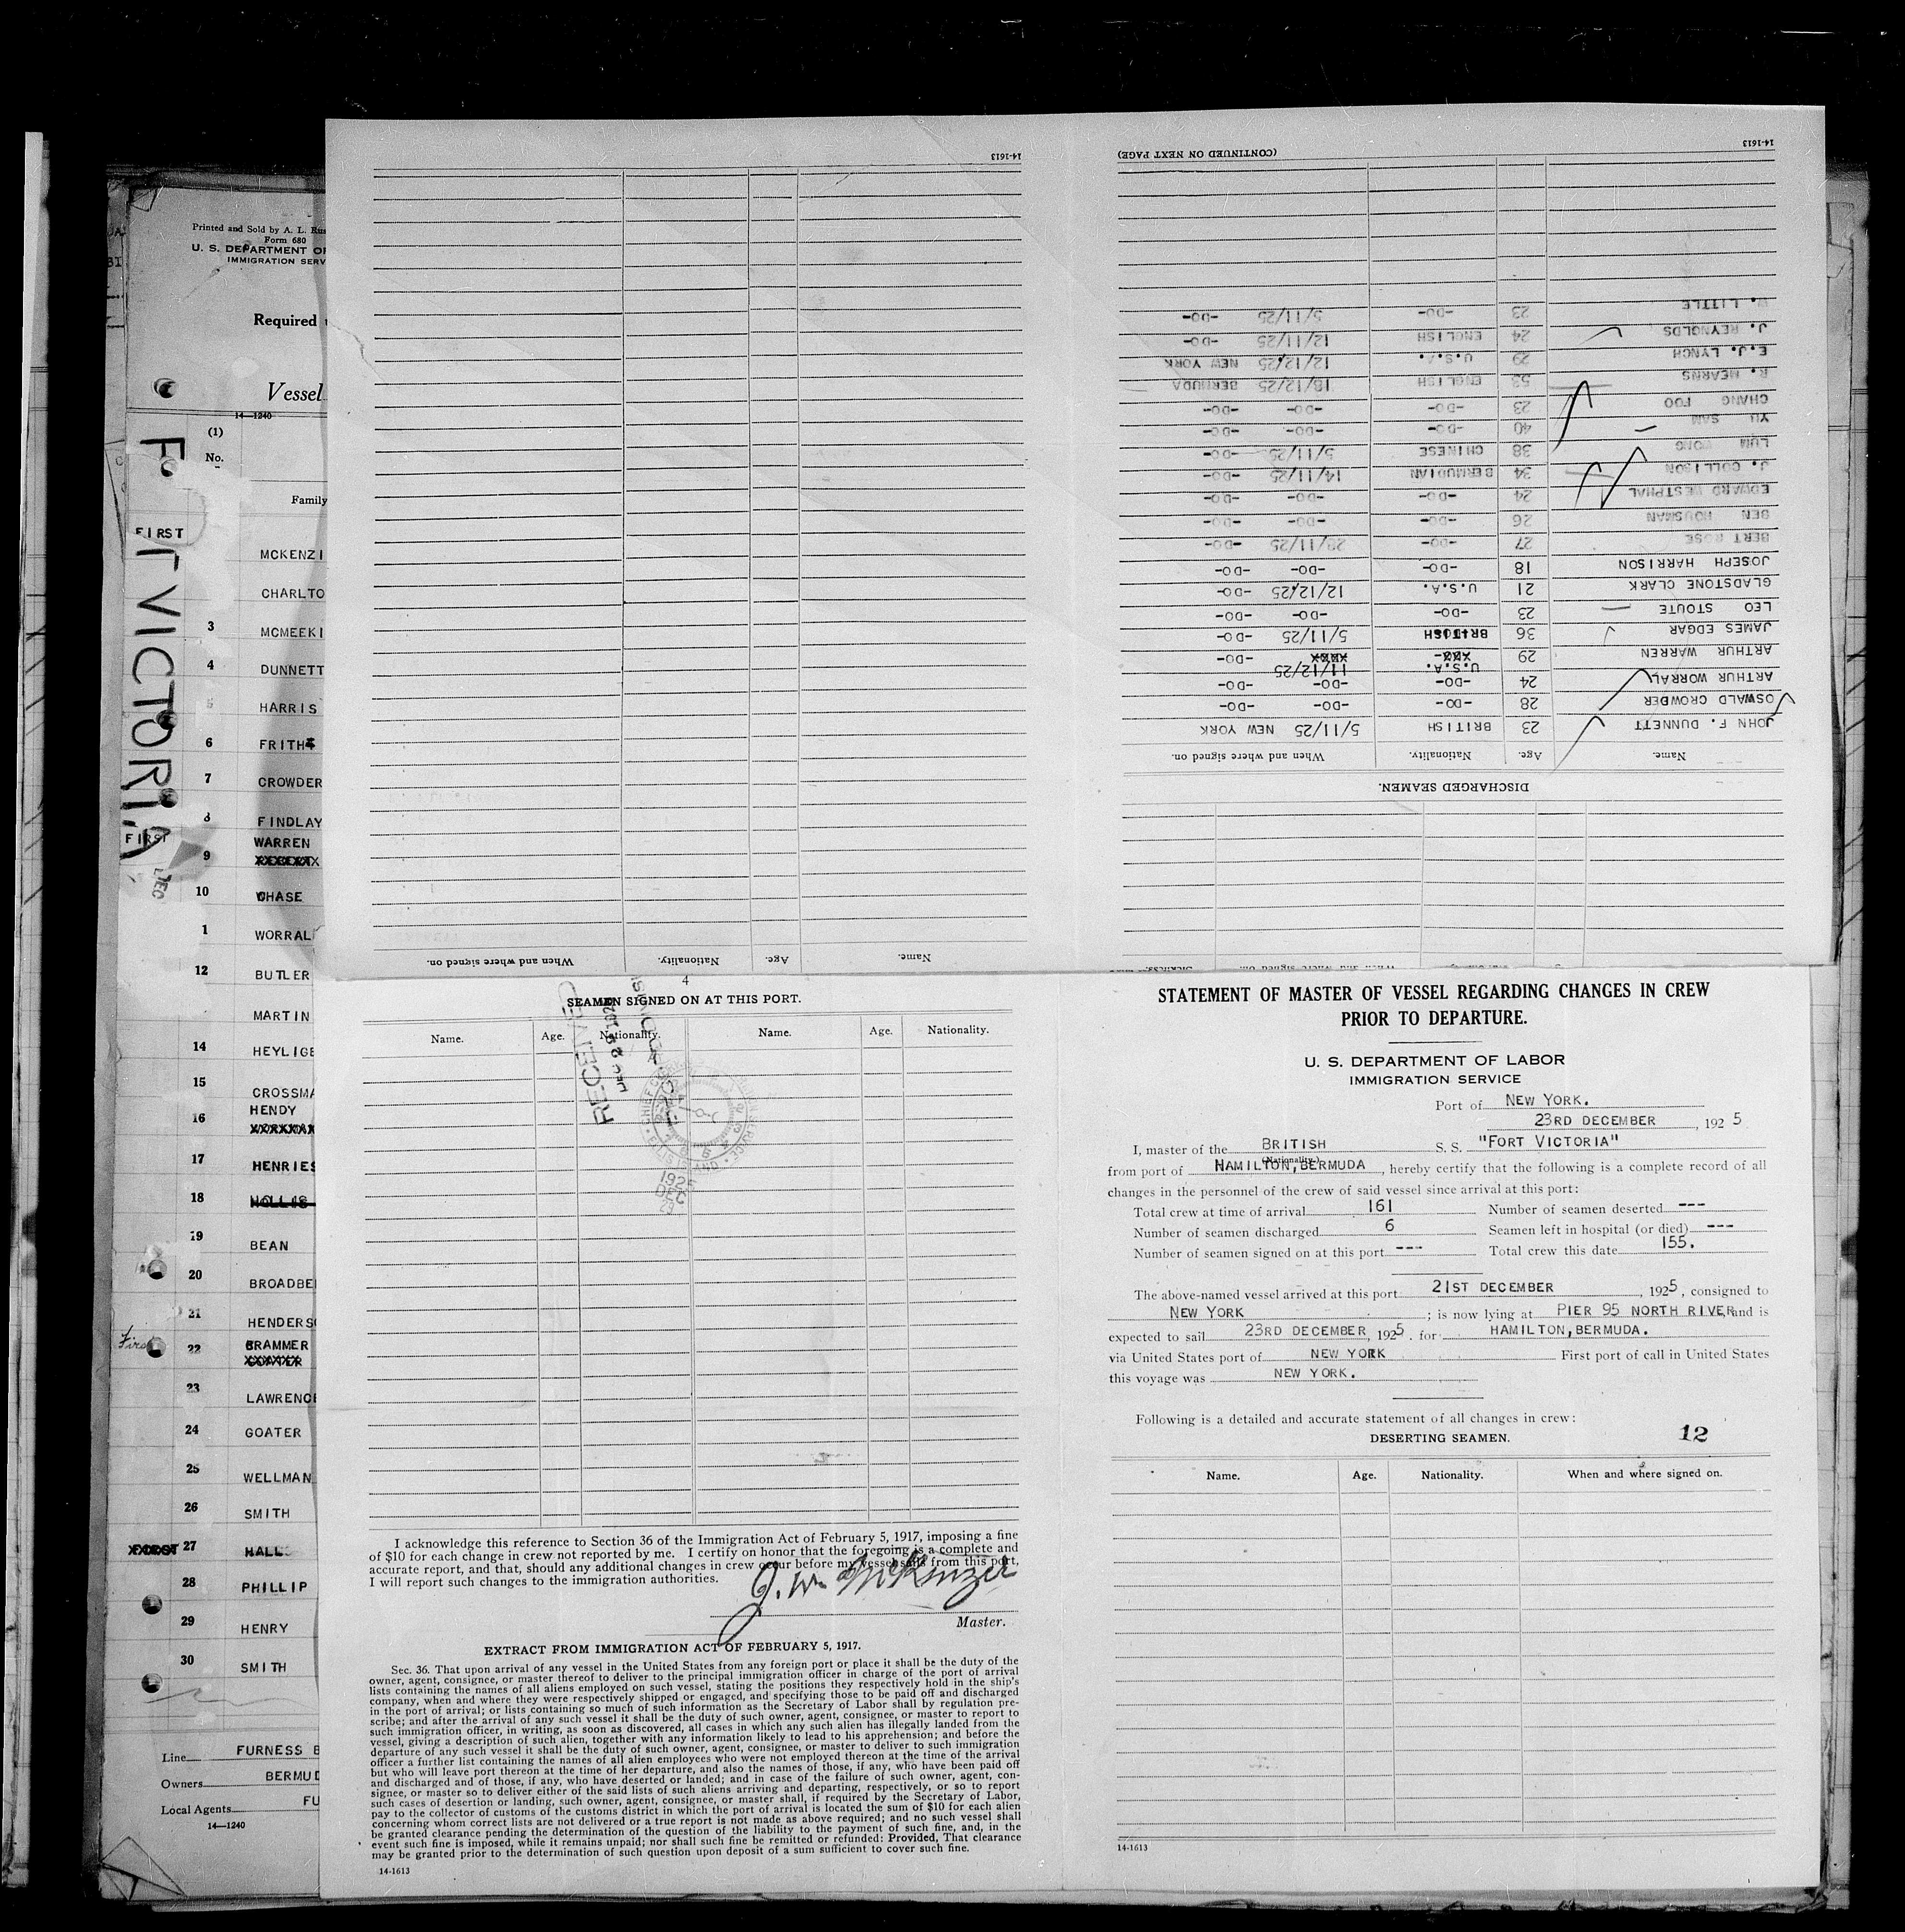 Printed and Sold by A. L.
Form 680
U. S. DEPARTMENT OF
IMMIGRATION SERV
Required
Vessel
14—1240
(1)
No.
Family
FIRST
F
T VICTORIA
MCKENZI
CHARLTO
3 MCMEEKI
4 DUNNETT
5 HARRIS
6 FRITH
7 CROWDER
8 FINDLAY
FIRST
WARREN
9
DEC
10 CHASE
1 WORRAL
12 BUTLER
MARTIN
14 HEYLIGE
15 CROSSMA
HENDY
16
17 HENRIES
18 HOLLIS
19 BEAN
20 BROADBE
21 HENDERSO
First 22 BRAMMER
23 LAWRENCE
24 GOATER
25 WELLMAN
26 SMITH
27 HALL
28 PHILLIP
29 HENRY
30 SMITH
Line FURNESS B
Owners BERMUD
Local Agents FU
14—1240
14-1613
Name. Age. Nationality. When and where signed on.
DISCHARGED SEAMEN.
Name. Age. Nationality. When and where signed on.
JOHN F. DUNNETT 23 BRITISH 5/11/25 NEW YORK
OSWALD CROWDER 28 -DO- -DO- -DO-
ARTHUR WORRALL 24 -DO- -DO- -DO-
U.S.A. 11/12/25
ARTHUR WARREN 29 XXX- XXXX -DO-
JAMES EDGAR 36 BRITISH 5/11/25 -DO-
LEO STOUTE 23 -DO- -DO- -DO-
GLADSTONE CLARK 21 U.S.A. 12/12/25 -DO-
JOSEPH HARRISON 18 -DO- -DO- -DO-
BERT ROSE 27 -DO- 28/11/25 -DO-
BEN HOUSMAN 26 -DO- -DO- -DO-
EDWARD WESTPHAL 24 -DO- -DO- -DO-
J. COLLISON 34 BERMUDIAN 14/11/25 -DO-
LUM WONG 38 CHINESE 5/11/25 -DO-
YU SAM 40 -DO- -DO- -DO-
CHANG FOO 23 -DO- -DO- -DO-
R. MEARNS 53 ENGLISH 18/12/25 BERMUDA
E.J. LYNCH 29 U.S.A. 12/12/25 NEW YORK
J. REYNOLDS 24 ENGLISH 12/11/25 -DO-
W. LITTLE 23 -DO- 5/11/25 -DO-
(CONTINUED ON NEXT PAGE)
14-1613
4
SEAMEN SIGNED ON AT THIS PORT.
Name. Age. Nationality. Name. Age. Nationality.
RECEIVED
1925
DEC
I acknowledge this reference to Section 36 of the Immigration Act of February 5, 1917, imposing a fine
of $10 for each change in crew not reported by me. I certify on honor that the foregoing is a complete and
accurate report, and that, should any additional changes in crew occur before my vessel sails from this port,
I will report such changes to the immigration authorities.
J. W. McKenzie
Master.
EXTRACT FROM IMMIGRATION ACT OF FEBRUARY 5, 1917.
Sec. 36. That upon arrival of any vessel in the United States from any foreign port or place it shall be the duty of the
owner, agent, consignee, or master thereof to deliver to the principal immigration officer in charge of the port of arrival
lists containing the names of all aliens employed on such vessel, stating the positions they respectively hold in the ship's
company, when and where they were respectively shipped or engaged, and specifying those to be paid off and discharged
in the port of arrival; or lists containing so much of such information as the Secretary of Labor shall by regulation pre-
scribe; and after the arrival of any such vessel it shall be the duty of such owner, agent, consignee, or master to report to
such immigration officer, in writing, as soon as discovered, all cases in which any such alien has illegally landed from the
vessel, giving a description of such alien, together with any information likely to lead to his apprehension; and before the
departure of any such vessel it shall be the duty of such owner, agent, consignee, or master to deliver to such immigration
officer a further list containing the names of all alien employees who were not employed thereon at the time of the arrival
but who will leave port thereon at the time of her departure, and also the names of those, if any, who have been paid off
and discharged and of those, if any, who have deserted or landed; and in case of the failure of such owner, agent, con-
signee, or master so to deliver either of the said lists of such aliens arriving and departing, respectively, or so to report
such cases of desertion or landing, such owner, agent, consignee, or master shall, if required by the Secretary of Labor,
pay to the collector of customs of the customs district in which the port of arrival is located the sum of $10 for each alien
concerning whom correct lists are not delivered or a true report is not made as above required; and no such vessel shall
be granted clearance pending the determination of the question of the liability to the payment of such fine, and, in the
event such fine is imposed, while it remains unpaid; nor shall such fine be remitted or refunded: Provided, That clearance
may be granted prior to the determination of such question upon deposit of a sum sufficient to cover such fine.
14-1613
STATEMENT OF MASTER OF VESSEL REGARDING CHANGES IN CREW
PRIOR TO DEPARTURE.
U. S. DEPARTMENT OF LABOR
IMMIGRATION SERVICE
Port of NEW YORK.
23RD DECEMBER, 1925
I, master of the BRITISH S. S. "FORT VICTORIA"
(Nationality.)
from port of HAMILTON,BERMUDA, hereby certify that the following is a complete record of all
changes in the personnel of the crew of said vessel since arrival at this port:
Total crew at time of arrival 161 Number of seamen deserted ---
Number of seamen discharged 6 Seamen left in hospital (or died) ---
Number of seamen signed on at this port --- Total crew this date 155.
The above-named vessel arrived at this port 21ST DECEMBER, 1925, consigned to
NEW YORK ; is now lying at PIER 95 NORTH RIVER, and is
expected to sail 23RD DECEMBER, 1925. for HAMILTON,BERMUDA.
via United States port of NEW YORK First port of call in United States
this voyage was NEW YORK.
Following is a detailed and accurate statement of all changes in crew:
DESERTING SEAMEN. 12
Name. Age. Nationality. When and where signed on.
14-1613